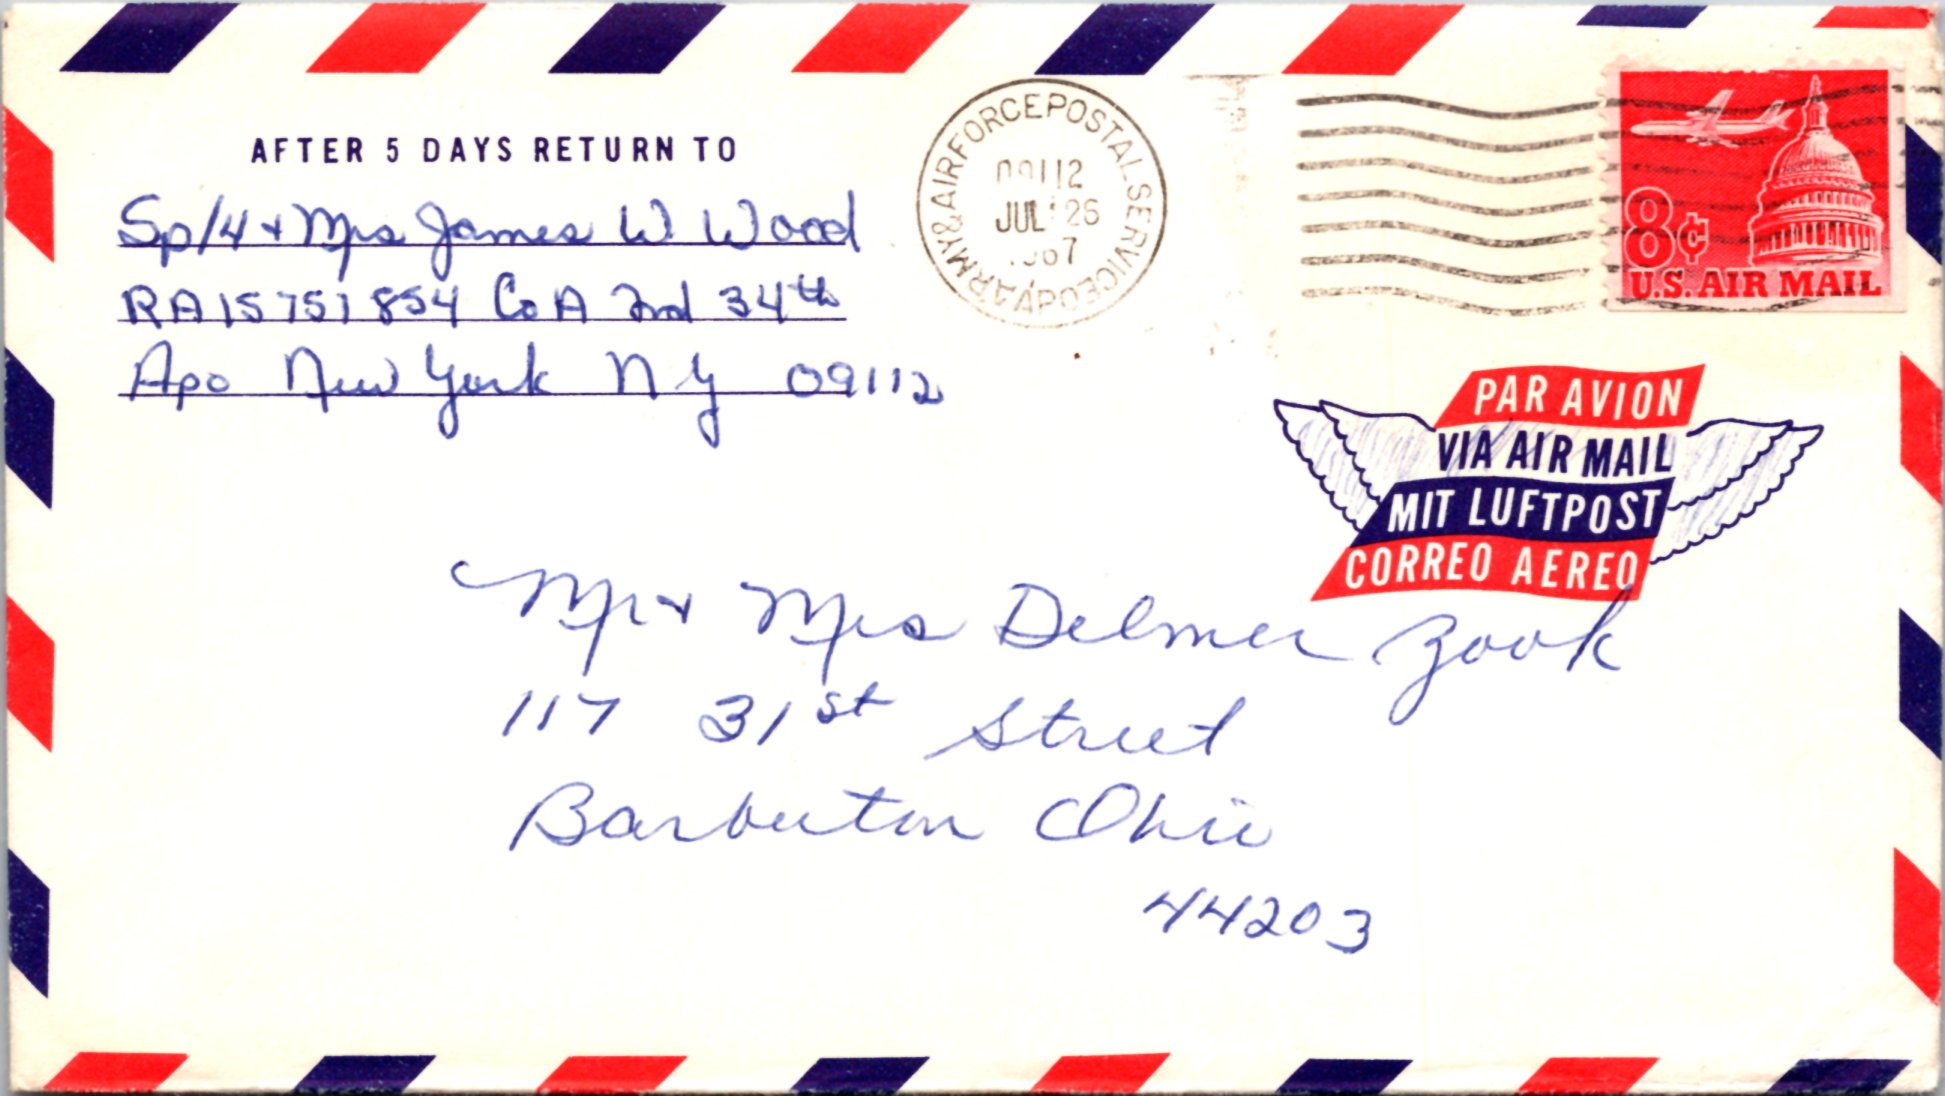 AFTER 5 DAYS RETURN TO
Sp/4 + Mrs James W. Wood
RA15751854 Co A 2nd 34th
Apo New York N Y 09112
ARMY & AIR FORCE POSTAL SERVICE APO
09112
JUL 26
1967
8¢
U.S. AIR MAIL
PAR AVION
VIA AIR MAIL
MIT LUFTPOST
CORREO AEREO
Mr + Mrs Delmer Zook
117 31st Street
Barberton Ohio
44203